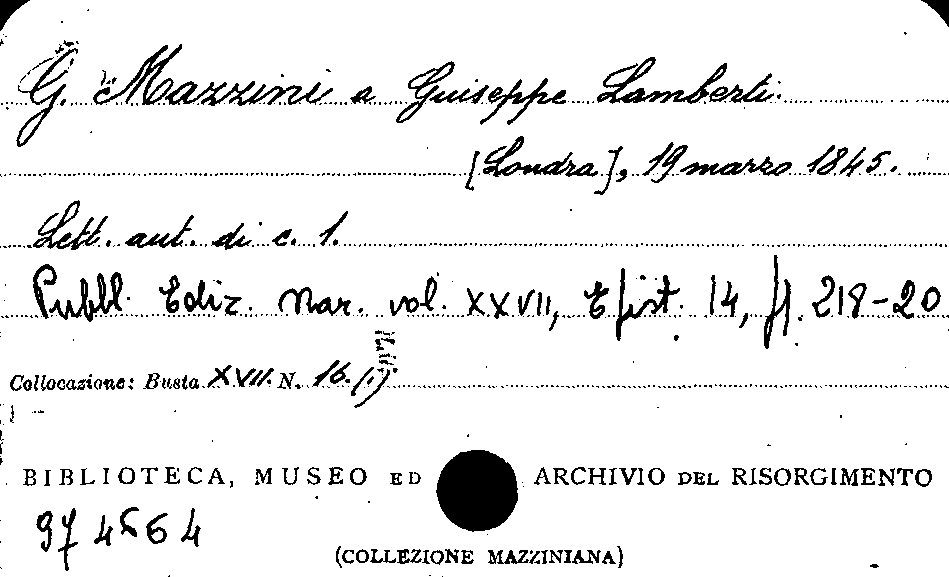 G. Mazzini a Guiseppe Lamberti.
[Londra], 19 marzo 1845.
Lett. aut. di c. 1.
Pubbl. Ediz. Naz. vol. XXVII, Epist. 14, pp. 218-20
Collocazione: Busta XVII. N. 16.
BIBLIOTECA, MUSEO ED ARCHIVIO DEL RISORGIMENTO
974564
(COLLEZIONE MAZZINIANA)